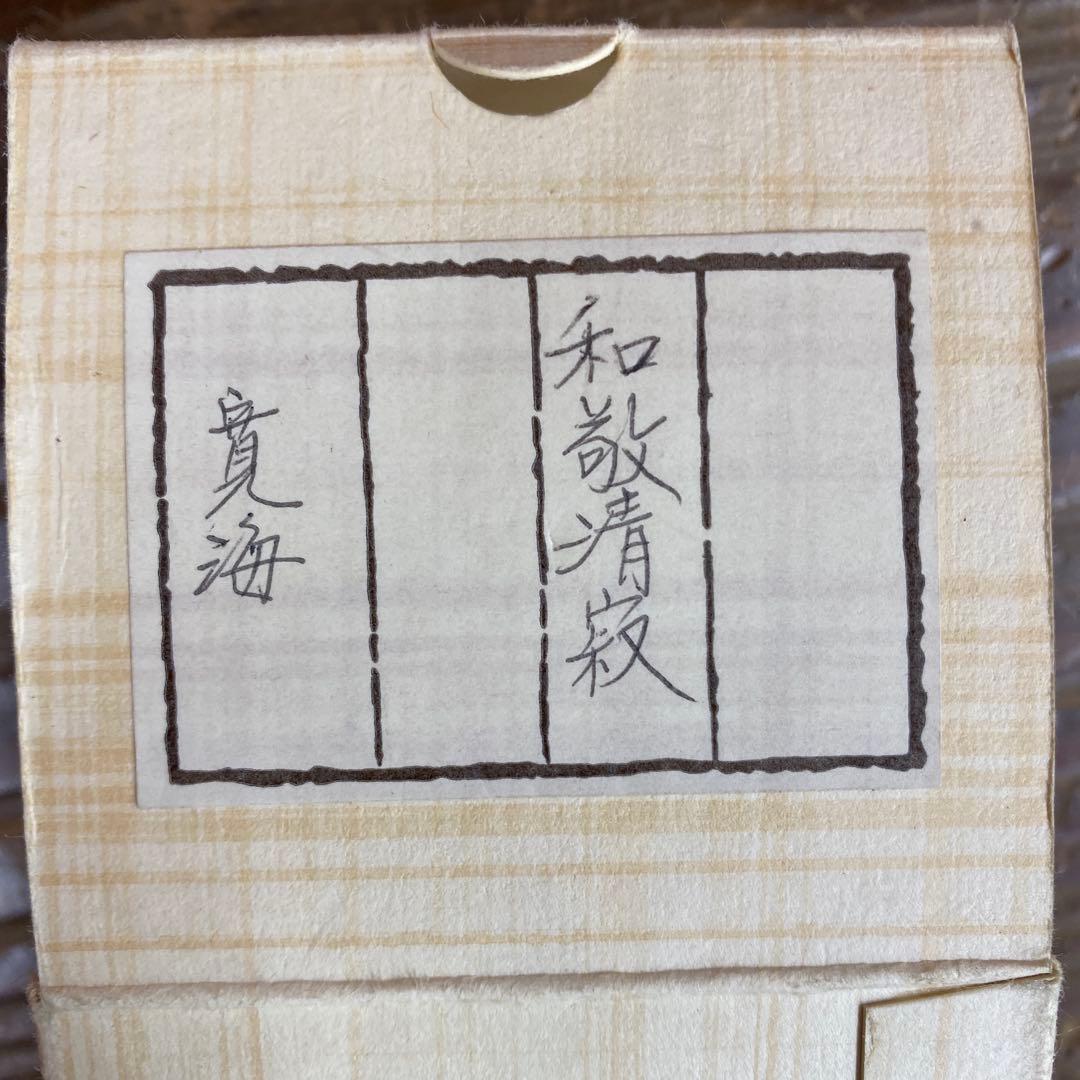 和敬清寂
寛海